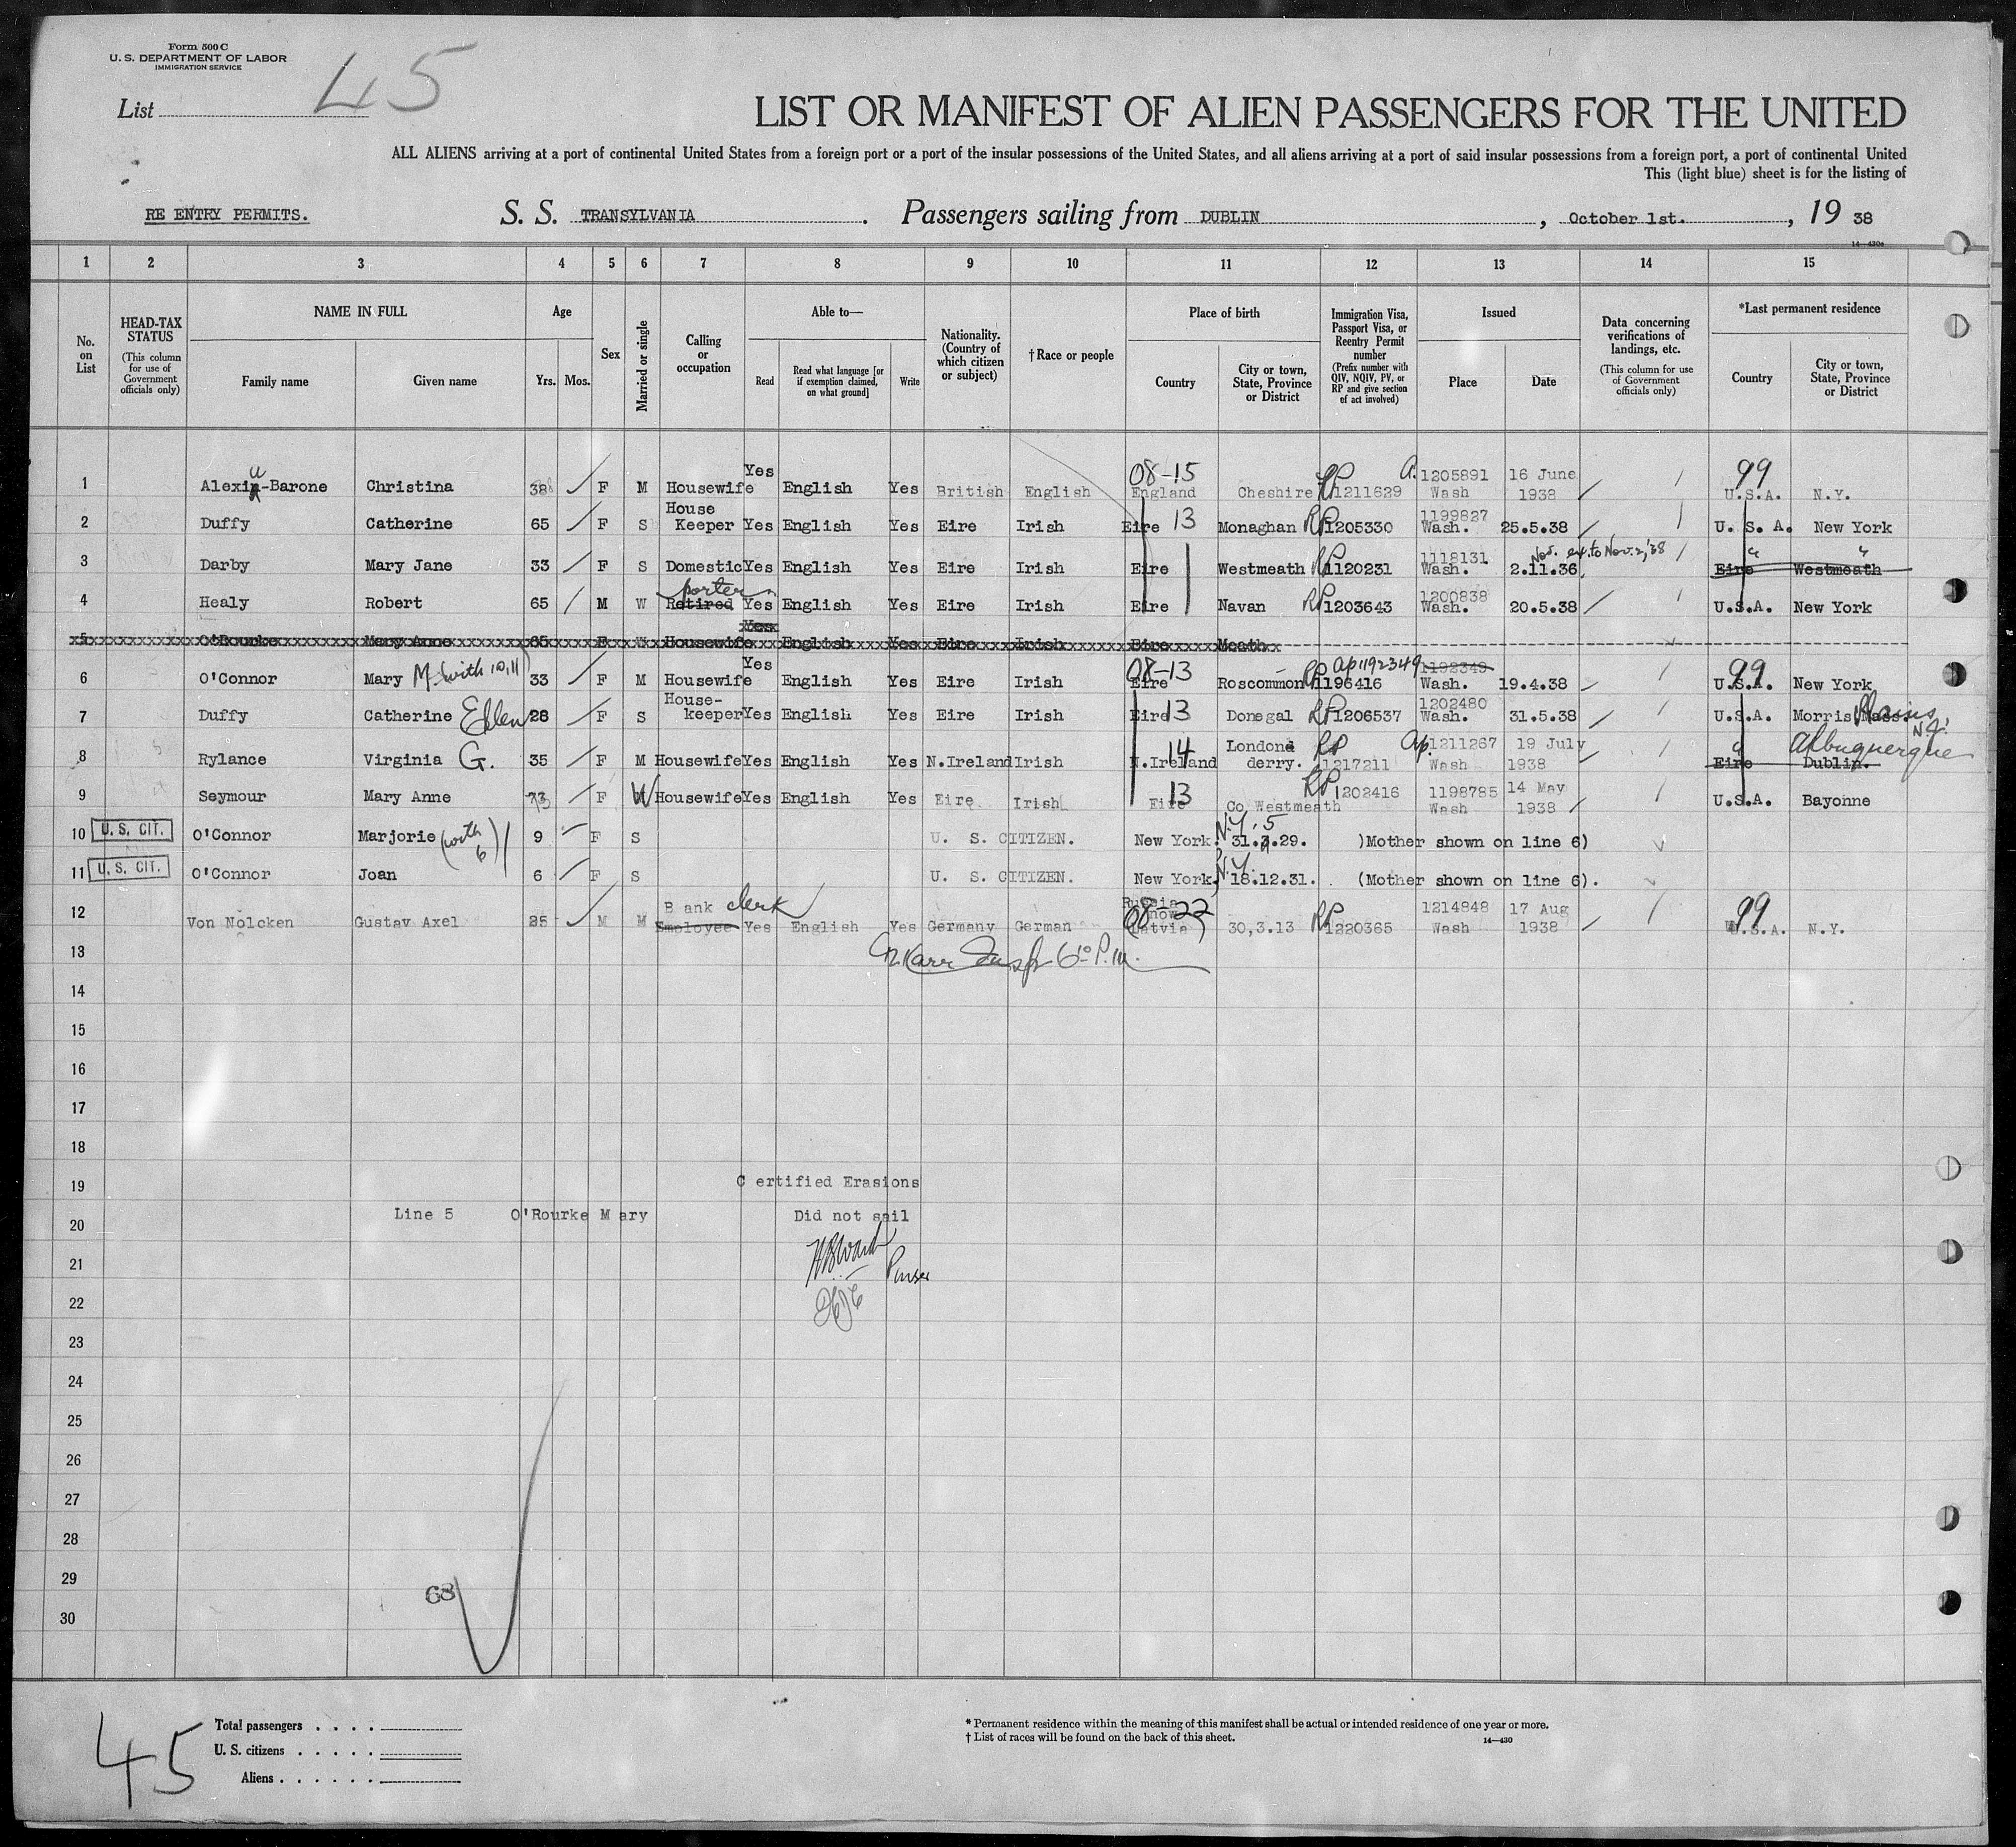 Form 500 C
U. S. DEPARTMENT OF LABOR
IMMIGRATION SERVICE
List 45
LIST OR MANIFEST OF ALIEN PASSENGERS FOR THE UNITED
ALL ALIENS arriving at a port of continental United States from a foreign port or a port of the insular possessions of the United States, and all aliens arriving at a port of said insular possessions from a foreign port, a port of continental United
This (light blue) sheet is for the listing of
RE ENTRY PERMITS. S. S. TRANSYLVANIA . Passengers sailing from DUBLIN , October 1st. , 19 38
14—430a
1 2 3 4 5 6 7 8 9 10 11 12 13 14 15
No. on List
HEAD-TAX STATUS
(This column for use of Government officials only)
NAME IN FULL
Family name Given name
Age
Yrs. Mos.
Sex
Married or single
Calling or occupation
Able to—
Read
Read what language [or if exemption claimed, on what ground]
Write
Nationality. (Country of which citizen or subject)
†Race or people
Place of birth
Country
City or town, State, Province or District
Immigration Visa, Passport Visa, or Reentry Permit number
(Prefix number with QIV, NQIV, PV, or RP and give section of act involved)
Issued
Place Date
Data concerning verifications of landings, etc.
(This column for use of Government officials only)
*Last permanent residence
Country
City or town, State, Province or District
1 Alexin-Barone u Christina 38 F M Housewife Yes English Yes British English 08-15 England Cheshire RP 1211629 a. 1205891 Wash 16 June 1938 99 U.S.A. N.Y.
2 Duffy Catherine 65 F S House Keeper Yes English Yes Eire Irish Eire 13 Monaghan RP 1205330 1199827 Wash. 25.5.38 U. S. A. New York
3 Darby Mary Jane 33 F S Domestic Yes English Yes Eire Irish Eire Westmeath RP 1120231 1118131 Wash. 2.11.36 ext. to Nov. 2, '38 " " Eire Westmeath
4 Healy Robert 65 M W Retired porter Yes English Yes Eire Irish Eire Navan RP 1203643 1200838 Wash. 20.5.38 U.S.A. New York
5 O'Rourke Mary Anne 65 F W Housewife Yes English Yes Eire Irish Eire Meath
6 O'Connor Mary M. with 10, 11 33 F M Housewife Yes English Yes Eire Irish 08-13 Eire Roscommon RP 1196416 ap 1192349 1192349 Wash. 19.4.38 99 U.S.A. New York
7 Duffy Catherine Ellen 28 F S House-keeper Yes English Yes Eire Irish Eire 13 Donegal RP 1206537 1202480 Wash. 31.5.38 U.S.A. Morris Mass. Plains, N.J.
8 Rylance Virginia G. 35 F M Housewife Yes English Yes N.Ireland Irish 14 N.Ireland Londonderry. RP 1217211 ap. 1211267 Wash 19 July 1938 " Eire Dublin. Albuquerque
9 Seymour Mary Anne 73 F W Housewife Yes English Yes Eire Irish 13 Eire Co Westmeath RP 1202416 1198785 Wash 14 May 1938 U.S.A. Bayonne
10 U. S. CIT. O'Connor Marjorie (with 6) 9 F S U. S. CITIZEN. New York. N.Y. 5 31.3.29. )Mother shown on line 6)
11 U. S. CIT. O'Connor Joan 6 F S U. S. CITIZEN. New York, N.Y. 18.12.31. (Mother shown on line 6).
12 Von Nolcken Gustav Axel 25 M M Bank Employee clerk Yes English Yes Germany German Russia now (Latvia) 08-22 30,3.13 RP 1220365 1214848 Wash 17 Aug 1938 99 U.S.A. N.Y.
13 Karr Insp 6 10 P.M.
14
15
16
17
18
19 C ertified Erasions
20 Line 5 O'Rourke M ary Did not sail
21 Ward Purser
22
23
24
25
26
27
28
29
30
63
45
Total passengers
U. S. citizens
Aliens
* Permanent residence within the meaning of this manifest shall be actual or intended residence of one year or more.
† List of races will be found on the back of this sheet.
14—430